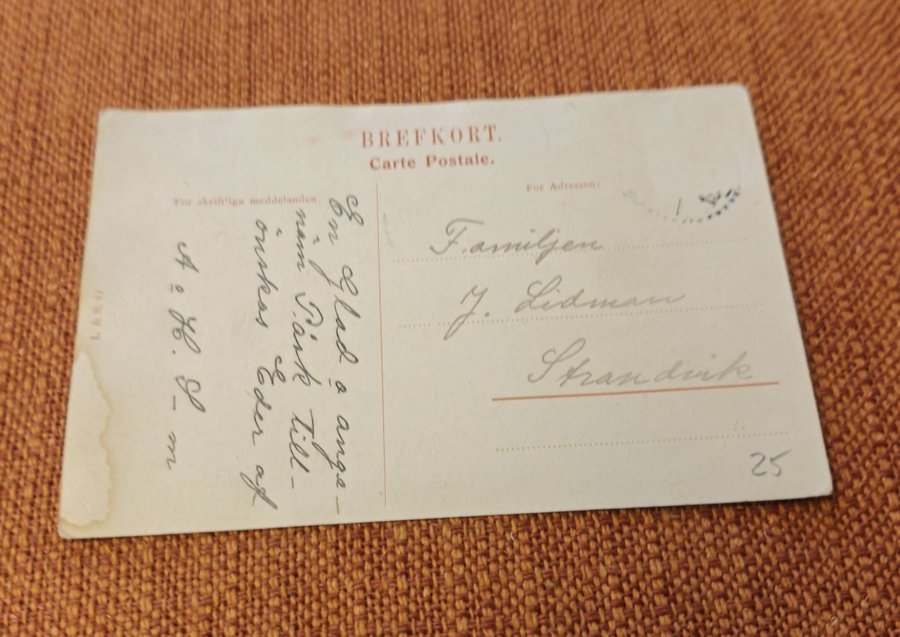 BREFKORT.
Carte Postale.
För skriftliga meddelanden.
För Adressen.
En Glad o ange-
näm Påsk till-
önskas Eder af
A o H. S-m
Familjen
J. Lidman
Strandvik
25